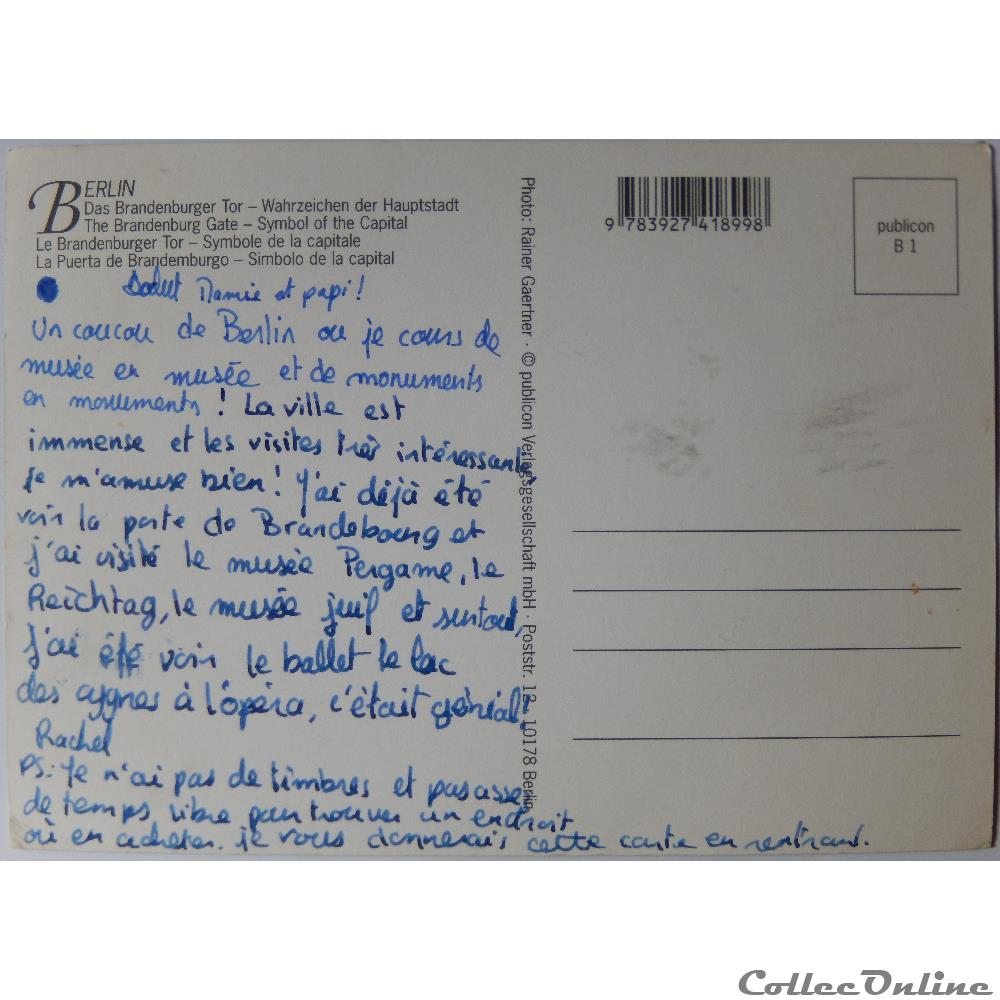 BERLIN
Das Brandenburger Tor – Wahrzeichen der Hauptstadt
The Brandenburg Gate – Symbol of the Capital
Le Brandenburger Tor – Symbole de la capitale
La Puerta de Brandemburgo – Simbolo de la capital
Salut Mamie et papi !
Un coucou de Berlin ou je cours de
musée en musée et de monuments
en monuments ! La ville est
immense et les visites très intéressantes,
je m'amuse bien ! J'ai déjà été
voir la porte de Brandeboarg et
j'ai visité le musée Pergame, le
Reichtag, le musée juif et surtout,
j'ai été voir le ballet le lac
des cygnes à l'opéra, c'était génial !
Rachel
PS: Je n'ai pas de timbres et pas assez
de temps libre pour trouver un endroit
où en acheter. je vous donnerais cette carte en rentrant.
Photo: Rainer Gaertner · © publicon Verlagsgesellschaft mbH · Poststr. 12 10178 Berlin
9 783927 418998
publicon
B 1
CollecOnline